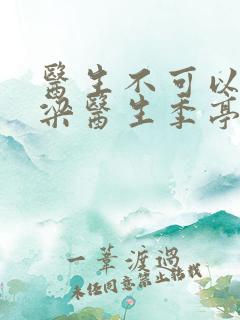 醫生不可以
梁醫生季亭
一葦渡過
未經同意禁止轉載